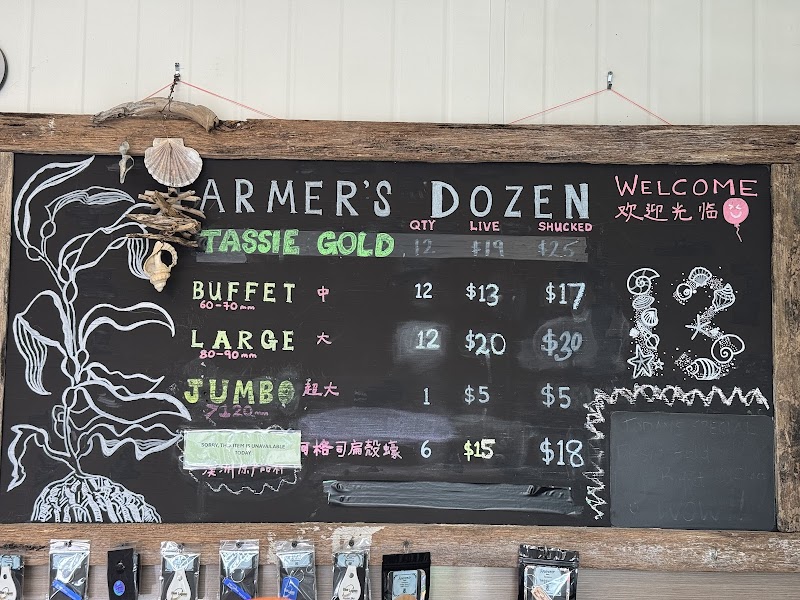 ARMER'S DOZEN
WELCOME
欢迎光临
QTY LIVE SHUCKED
TASSIE GOLD 12 $19 $25
BUFFET 中 12 $13 $17
60-70mm
LARGE 大 12 $20 $30
80-90mm
JUMBO 超大 1 $5 $5
7120mm
SORRY, THIS ITEM IS UNAVAILABLE
TODAY
阿格司扁殼蠔 6 $15 $18
13